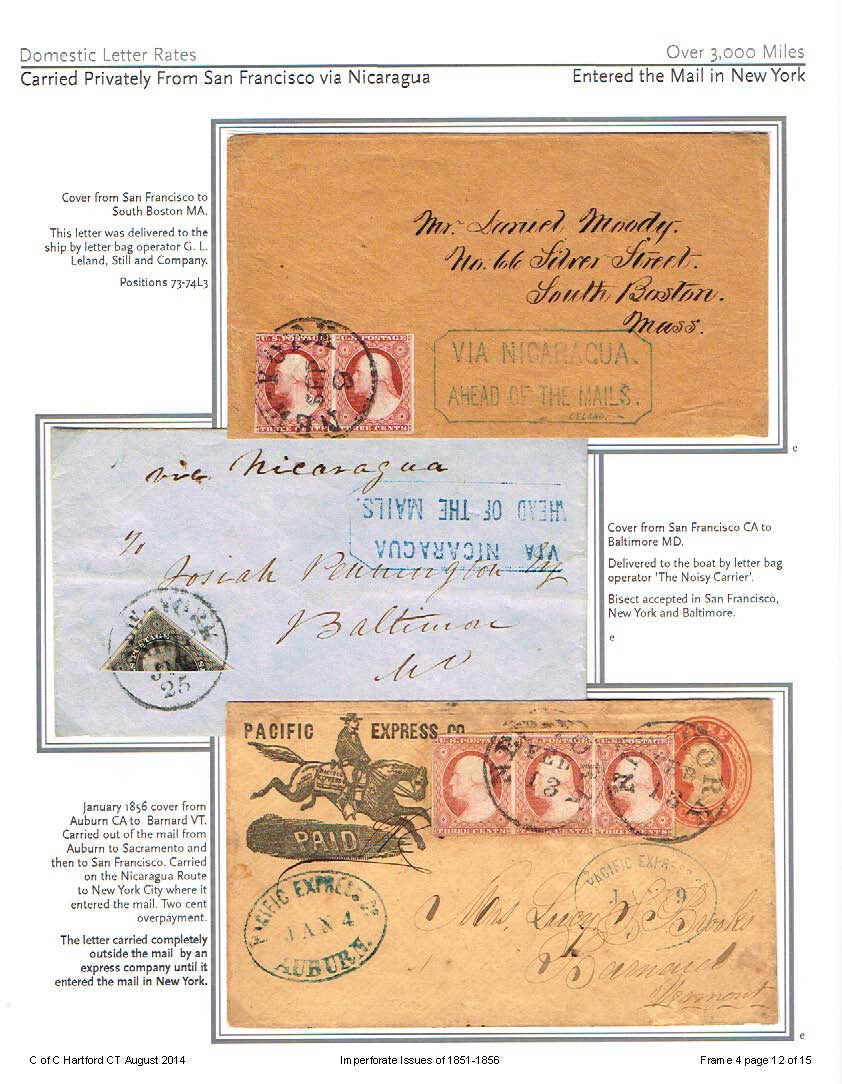 Domestic Letter Rates
Over 3,000 Miles
Carried Privately From San Francisco via Nicaragua
Entered the Mail in New York
Cover from San Francisco to
South Boston MA.
This letter was delivered to the
ship by letter bag operator G. L.
Leland, Still and Company.
Positions 73-74L3
Mr. Daniel Moody.
No. 66 Silver Street.
South Boston.
Mass.
U.S. POSTAGE
U.S. POSTAGE
THREE CENTS
THREE CENTS
VIA NICARAGUA.
AHEAD OF THE MAILS.
LELAND.
e
via Nicaragua
VIA NICARAGUA
AHEAD OF THE MAILS.
Josiah Pennington
Baltimore
Md
NEW-YORK
25
POSTAGE
Cover from San Francisco CA to
Baltimore MD.
Delivered to the boat by letter bag
operator 'The Noisy Carrier'.
Bisect accepted in San Francisco,
New York and Baltimore.
e
PACIFIC EXPRESS CO
PAID
U.S. POSTAGE
U.S. POSTAGE
U.S. POSTAGE
THREE CENTS
THREE CENTS
THREE CENTS
FEB
13
FEB
13
PACIFIC EXPRESS CO
JAN 4
AUBURN.
PACIFIC EXPRESS
JAN 9
Mrs. Lucy S. Brooks
Barnard
Vermont
January 1856 cover from
Auburn CA to Barnard VT.
Carried out of the mail from
Auburn to Sacramento and
then to San Francisco. Carried
on the Nicaragua Route
to New York City where it
entered the mail. Two cent
overpayment.
The letter carried completely
outside the mail by an
express company until it
entered the mail in New York.
e
C of C Hartford CT August 2014
Imperforate Issues of 1851-1856
Frame 4 page 12 of 15